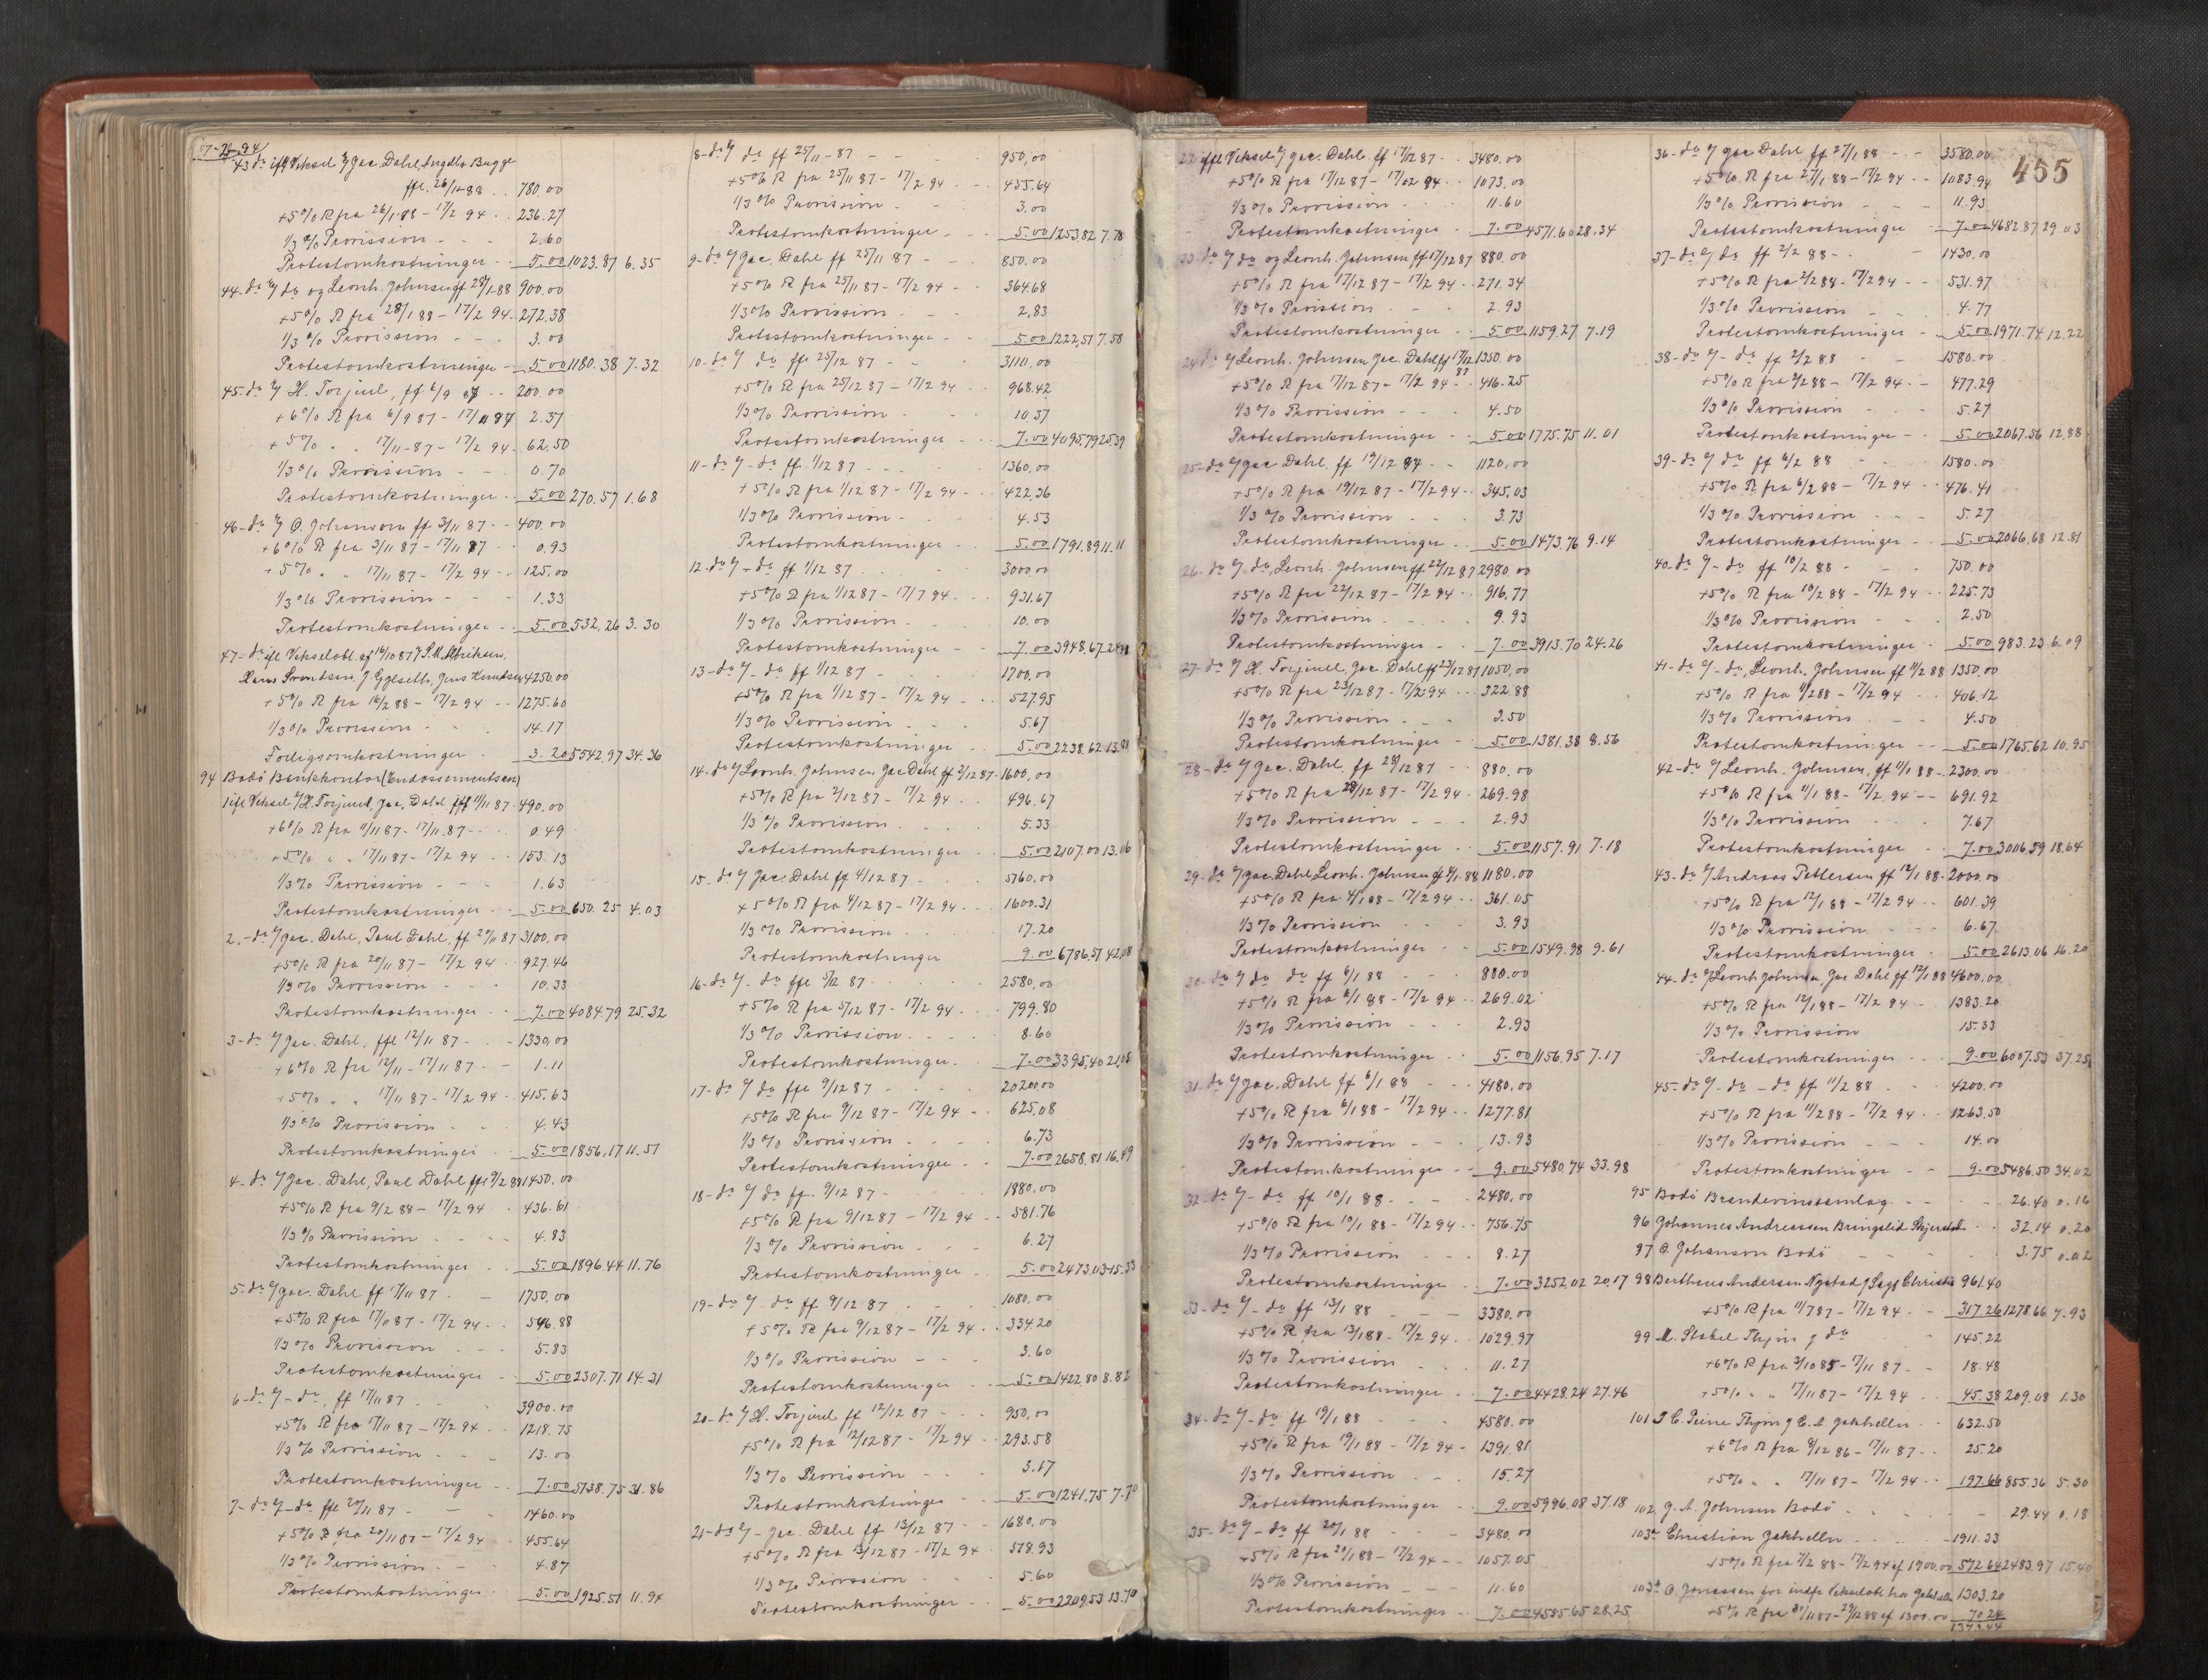 43 do ifl Veksel % Jac. Dahl, Ingebr. Bugge
ffl. 26/1-88 . . 780.00
+5% R fra 26/1-88 - 17/2 94 . . 236.27
1/3% Provission - - - 2.60
Protestomkostninger - - 5.00 1023.87 6.35
44- do % do og Leonh. Johnsen ff 28/1-88 900.00
+5% R fra 28/1 88 - 17/2 94 - 272.38
1/3% Provission - - - 3.00
Protestomkostninger - 5.00 1180.38 7.32
45- do % H. Torjuul, ff 6/9 87 - - 200.00
+6% R fra 6/9 87 - 17/11 87 2.37
+5% " " 17/11-87 - 17/2 94 - 62.50
1/3% Provission - - - 0.70
Protestomkostninger - - 5.00 270.57 1.68
46- do % O. Johanson ff 3/11 87 - - 400.00
+6% R fra 3/11 87 - 17/11 87 - - 0.93
+5% " " 17/11 87 - 17/2 94 - - 125.00
1/3% Provission - - - 1.33
Protestomkostninger - - 5.00 532.26 3.30
47- do ifl Vekselobl. af 16/10 87
4250.00
+5% R fra 16/2 88 - 17/2 94 - - 1275.60
1/3% Provission - - 14.17
3.20 5542.97 34.36
94 Bodö Bankkontor (Endossementsen)
1 ifl Veksel % H. Torjuul, Jac. Dahl ffl 11/11 87 - 490.00
+6% R fra 11/11 87 - 17/11 87 - - - 0.49
+5% " " 17/11 87 - 17/2 94 - - 153.13
1/3% Provission - - - 1.63
Protestomkostninger - - 5.00 650.25 4.03
2.- do % Jac. Dahl, Paul Dahl, ff 20/11 87 3100.00
+5% R fra 20/11 87 - 17/2 94 - - 927.46
1/3% Provission - - - 10.33
Protestomkostninger - - 7.00 4084.79 25.32
3- do % Jac. Dahl, ffl 12/11 87 - - - 1330.00
+6% R fra 12/11 - 17/11 87 - - 1.11
+5% " " 17/11 87 - 17/2 94 - - 415.63
1/3% Provission - - 4.43
Protestomkostninger - - 5.00 1856.17 11.51
4- do % Jac. Dahl, Paul Dahl ffl 9/2 88 1450.00
+5% R fra 9/2 88 - 17/2 94 - - 436.61
1/3% Provission - - - - 4.83
Protestomkostninger - - 5.00 1896.44 11.76
5- do % Jac. Dahl ff 17/11 87 - - 1750.00
+5% R fra 17/11 87 - 17/2 94 - - 546.88
1/3% Provission - - - 5.83
Protestomkostninger - 5.00 2307.71 14.31
6- do % - do, ff 17/11 87 - - 3900.00
+5% R fra 17/11 87 - 17/2 94 - - 1218.75
1/3% Provission - - - 13.00
Protestomkostninger - - 7.00 5138.75 31.86
7- do % - do ffl 20/11 87 - - - 1460.00
+5% R fra 20/11 87 - 17/2 94 455.64
1/3% Provission - - 4.87
Protestomkostninger - - 5.00 1925.51 11.94
8- do % do ff 25/11 - 87 - - - 950.00
+5% R fra 25/11 87 - 17/2 94 - - - 455.64
1/3% Provission - - 3.00
Protestomkostninger - - - 5.00 1253.82 7.78
9- do % Jac. Dahl ff 25/11 87 - - 850.00
+5% R fra 25/11 87 - 17/2 94 - - 364.68
1/3% Provission - - - 2.83
Protestomkostninger - - - 5.00 1222.51 7.58
10- do % do ffl 25/12 87 - - - 3110.00
+5% R fra 25/12 87 - 17/2 94 - - 968.42
1/3% Provission - - - 10.37
Protestomkostninger - - - 7.00 4095.79 25.39
11- do % - do ff. 1/12 87 - - - - 1360.00
+5% R fra 1/12 87 - 17/2 94 - - - 422.36
1/3% Provission - - - 4.53
Protestomkostninger - - 5.00 1791.89 11.11
12- do % - do ff 1/12 87 . - - - 3000.00
+5% R fra 1/12 87 - 17/7 94 - - - 931.67
1/3% Provission - - - 10.00
Protestomkostninger - - - 7.00 3948.67
13- do % - do ff 1/12 87 - - - 1700.00
+5% R fra 1/12 87 - 17/2 94 - - 527.95
1/3% Provission - - - 5.67
Protestomkostninger - - 5.00 2238.62
14- do % Leonh. Johnsen Jac Dahl ff 2/12 87 - 1600.00
+5% R fra 2/12 87 - 17/2 94 - - 496.67
1/3% Provission - - - - 5.33
Protestomkostninger - - - 5.00 2107.00 13.06
15- do % Jac. Dahl ff 4/12 87 - - - 5160.00
+5% R fra 4/12 87 - 17/2 94 - - - 1600.31
1/3% Provission - - - 17.20
Protestomkostninger 9.00 6786.51 42.08
16- do % - do ffl 5/12 87 - - - - 2580.00
+5% R fra 5/12 87 - 17/2 94 - - - 799.80
1/3% Provission - - - - 8.60
Protestomkostninger - - - 7.00 3395.40 21.05
17- do % do ffl 9/12 87 - - - - 2020.00
+5% R fra 9/12 87 - 17/2 94 - - 625.08
1/3% Provission - - - - 6.73
Protestomkostninger - - 7.00 2658.81 16.49
18- do % do ff. 9/12 87 - - - - 1880.00
+5% R fra 9/12 87 - 17/2 94 - - 581.76
1/3% Provission - - - 6.27
Protestomkostninger - - 5.00 2473.03 15.33
19- do % - do ff 9/12 87 - - - 1080.00
+5% R fra 9/12 87 - 17/2 94 - - 334.20
1/3% Provission - - - 3.60
Protestomkostninger - - - 5.00 1422.80 8.82
20- do % H. Torjuul ff 12/12 87 - - - 950.00
+5% R fra 12/12 87 - 17/2 94 - - 293.58
1/3% Provission - - - 3.17
Protestomkostninger - - - 5.00 1241.75 7.70
21- do % - Jac. Dahl ff 13/12 87 - - 1680.00
+5% R fra 13/12 87 - 17/2 94 - 518.93
1/3% Provission - - - 5.60
Protestomkostninger - - - 5.00 2209.53 13.70
22 iffl Veksel % Jac. Dahl. ff 17/12 87 - - 3480.00
+5% R fra 17/12 87 - 17/2 94 - - 1073.00
1/3% Provission - - - 11.60
Protestomkostninger - - 7.00 4571.60 28.34
23- do % do og Leonh. Johnsen ff 17/12 87 880.00
+5% R fra 17/12 87 - 17/2 94 - - 271.34
1/3% Provission - - - 2.93
Protestomkostninger - - 5.00 1159.27 7.19
24 do % Leonh. Johnsen Jac Dahl ff 17/12 87 1350.00
+5% R fra 17/12 87 - 17/2 94 - - 416.25
1/3% Provission - - - 4.50
Protestomkostninger - - 5.00 1775.75 11.01
25- do % Jac Dahl. ff 19/12 87 - - 1120.00
+5% R fra 19/12 87 - 17/2 94 - - 345.03
1/3% Provission - - - 3.73
Protestomkostninger - - 5.00 1473.76 9.14
26- do % do, Leonh. Johnsen ff 22/12 87 2980.00
+5% R fra 22/12 87 - 17/2 94 - - 916.77
1/3% Provission - - - 9.93
Protestomkostninger - - 7.00 3913.70 24.26
27- do % H. Torjuul, Jac. Dahl ff 23/12 87 1050.00
+5% R fra 23/12 87 - 17/2 94 - - - 322.88
1/3% Provission - - - 3.50
Protestomkostninger - - 5.00 1381.38 8.56
28- do % Jac. Dahl. ff 28/12 87 - - 880.00
+5% R fra 28/12 87 - 17/2 94 - 269.98
1/3% Provission - - - 2.93
Protestomkostninger - - 5.00 1157.91 7.18
29- do % Jac. Dahl, Leonh. Johnsen ff 4/1-88 1180.00
+5% R fra 4/1 88 - 17/2 94 - - 361.05
1/3% Provission - - - 3.93
Protestomkostninger - - 5.00 1549.98 9.61
30- do % do do ff 6/1 88 - - - 880.00
+5% R fra 6/1 88 - 17/2 94 - - 269.02
1/3% Provission - - - 2.93
Protestomkostninger - - 5.00 1156.95 7.17
31- do % Jac. Dahl ff 6/1 88 - - - 4180.00
+5% R fra 6/1 88 - 17/2 94 - - 1277.81
1/3% Provission - - - 13.93
Protestomkostninger - - 9.00 5480.74 33.98
32- do % - do ff 10/1 88 - - - - 2480.00
+5% R fra 10/1 88 - 17/2 94 - - 756.75
1/3% Provission - - - 8.27
Protestomkostninge - - 7.00 3252.02 20.17
33- do % - do ff 13/1 88 - - - 3380.00
+5% R fra 13/1 88 - 17/2 94 - - 1029.97
1/3% Provission - - - 11.27
Protestomkostninger - - 7.00 4428.24 27.46
34- do % - do ff 19/1 88 - - - 4580.00
+5% R fra 19/1 88 - 17/2 94 - 1391.81
1/3% Provission - - - 15.27
Protestomkostninger - - 9.00 5996.08 37.18
35- do % - do ff 20/1 88 - - - 3480.00
+5% R fra 20/1 88 - 17/2 94 - - 1057.05
1/3% Provission - - - 11.60
Protestomkostninger - - 7.00 4555.65 28.25
455
36- do % Jac Dahl ff 27/1 88 - - 3580.00
+5% R fra 27/1 88 - 17/2 94 - - 1083.94
1/3% Provission - - - 11.93
Protestomkostninger - 7.00 4682.87 29.03
37- do % do ff 2/2 88 - - - 1430.00
+5% R fra 2/2 88 - 17/2 94 - - 531.97
1/3% Provission - - - 4.77
Protestomkostninger - 5.00 1971.74 12.22
38- do % - do ff 2/2 88 - - 1580.00
+5% R fra 2/2 88 - 17/2 94 - - 477.29
1/3% Provission - - - 5.27
Protestomkostninger - - 5.00 2067.56 12.88
39- do % do ff 6/2 88 - - 1580.00
+5% R fra 6/2 88 - 17/2 94 - - 476.41
1/3% Provission - - - 5.27
Protestomkostninger - - 5.00 2066.68 12.81
40- do % - do ff 10/2 88 - - - 750.00
+5% R fra 10/2 88 - 17/2 94 - - 225.73
1/3% Provission - - - 2.50
Protestomkostninger - - 5.00 983.23 6.09
41- do % - do, Leonh. Johnsen ff 11/2 88 1350.00
+5% R fra 11/2 88 - 17/2 94 - - 406.12
1/3% Provission - - - 4.50
Protestomkostninger - - 5.00 1765.62 10.95
42- do % Leonh. Johnsen, ff 11/1 88 - - 2300.00
+5% R fra 11/1 88 - 17/2 94 - - 691.92
1/3% Provission - - - 7.67
Protestomkostninger - - 7.00 3006.59 18.64
43- do % Andreas Pettersen ff 12/1 88 - 2000.00
+5% R fra 12/1 88 - 17/2 94 - - 601.39
1/3% Provission - - - 6.67
Protestomkostninger - - 5.00 2613.06 16.20
44- do % Leonh Johnsen, Jac Dahl ff 12/1 88 4600.00
+5% R fra 12/1 88 - 17/2 94 - - 1383.20
1/3% Provission 15.33
Protestomkostninger - - - 9.00 6007.53 37.25
45- do % - do - do ff 11/2 88 - - 4200.00
+5% R fra 11/2 88 - 17/2 94 - - 1263.50
1/3% Provission - - - 14.00
Protestomkostninger - - 9.00 5486.50 34.02
95 Bodö Brændevinssamlag - - - - 26.40 0.16
96 Johannes Andreassen Bringslid Skjerstad - - 32.14 0.20
97 O. Johanson Bodö - - - - 3.75 0.02
98 Bertheus Andersen Nystad 961.40
+5% R fra 11/7 87 - 17/2 94 - - 317.26 1278.66 7.93
99 M. Stabel Thjm % do 145.22
+6% R fra 3/10 85 - 17/11 87 - - 18.48
+5% " " 17/11 87 - 17/2 94 - - 45.38 209.08 1.30
101 Thjm % C. A. Jakhelln - - 632.50
+6% R fra 9/12 86 - 17/11 87 - - 25.20
+5% " " 17/11 87 - 17/2 94 - - 197.66 855.36 5.30
102 J. A. Johnsen Bodö - - - - 29.44 0.18
103a Christian Jakhelln - - - - 1911.33
+5% R fra 7/2 88 - 17/2 94 af 1900.00 572.64 2483.97 15.40
103b O. Jonassen for indfr. Vekselobl. hos Jakhelln 1303.20
+5% R fra 20/11 87 - 29/12 88 af 1300.00 70.24
1373.44